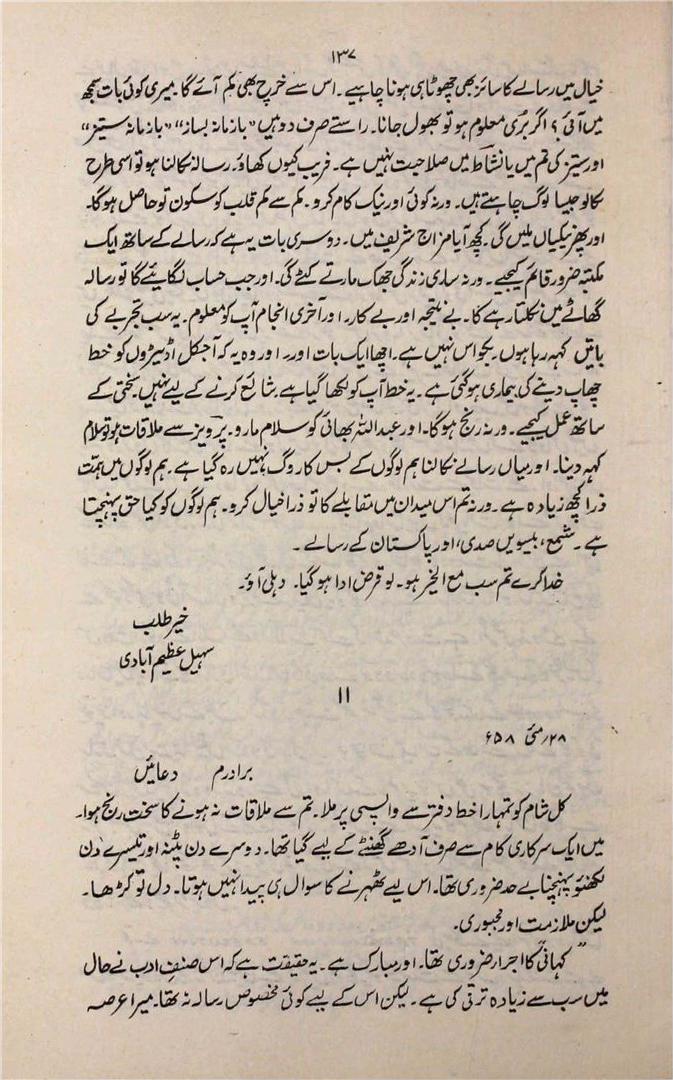 ۱۳۷
خیال میں رسالے کا سائز بھی چھوٹا ہی ہونا چاہیے۔ اس سے خرچ بھی کم آئے گا۔ میری کوئی بات سمجھ
میں آئی؟ اگر بُری معلوم ہو تو بھول جانا۔ راستے صرف دو ہیں "بازمانہ بساز" "بازمانہ ستیز"
اور ستیز کی تم میں یا نشاط میں صلاحیت نہیں ہے۔ فریب کیوں کھاؤ۔ رسالہ نکالنا ہو تو اسی طرح
نکالو جیسا لوگ چاہتے ہیں۔ ورنہ کوئی اور نیک کام کرو۔ کم سے کم قلب کو سکون تو حاصل ہوگا۔
اور پھر نیکیاں ملیں گی۔ کچھ آیا مزاج شریف میں۔ دوسری بات یہ ہے کہ رسالے کے ساتھ ایک
مکتبہ ضرور قائم کیجیے۔ ورنہ ساری زندگی جھک مارتے کٹے گی۔ اور جب حساب لگایئے گا تو رسالہ
گھاٹے میں نکلتا رہے گا۔ بے نتیجہ اور بے کار۔ اور آخری انجام آپ کو معلوم۔ یہ سب تجربے کی
باتیں کہہ رہا ہوں۔ بکواس نہیں ہے۔ اچھا ایک بات اور۔ اور وہ یہ کہ آجکل اڈیٹروں کو خط
چھاپ دینے کی بیماری ہو گئی ہے۔ یہ خط آپ کو لکھا گیا ہے شائع کرنے کے لیے نہیں۔ سختی کے
ساتھ عمل کیجیے۔ ورنہ رنج ہوگا۔ اور عبداللہ بھائی کو سلام مارو۔ پرویز سے ملاقات ہو تو سلام
کہہ دینا۔ اور میاں رسالے نکالنا ہم لوگوں کے بس کا روگ نہیں رہ گیا ہے۔ ہم لوگوں میں ہمت
ذرا کچھ زیادہ ہے۔ ورنہ تم اس میدان میں مقابلے کا تو ذرا خیال کرو۔ ہم لوگوں کو کیا حق پہنچتا
ہے۔ شمع، بیسویں صدی، اور پاکستان کے رسالے۔
خدا کرے تم سب مع الخیر ہو۔ لو قرض ادا ہو گیا۔ دہلی آؤ۔
خیر طلب
سہیل عظیم آبادی
۱۱
۲۸؍ مئی ۵۸ء
برادرم دعائیں
کل شام کو تمہارا خط دفتر سے واپسی پر ملا۔ تم سے ملاقات نہ ہونے کا سخت رنج ہوا۔
میں ایک سرکاری کام سے صرف آدھے گھنٹے کے لیے گیا تھا۔ دوسرے دن پٹنہ اور تیسرے دن
لکھنؤ پہنچنا بے حد ضروری تھا۔ اس لیے ٹھہرنے کا سوال ہی پیدا نہیں ہوتا۔ دل تو کڑھا۔
لیکن ملازمت اور مجبوری۔
"کہانی" کا اجراء ضروری تھا۔ اور مبارک ہے۔ یہ حقیقت ہے کہ اس صنف ادب نے حال
میں سب سے زیادہ ترقی کی ہے۔ لیکن اس کے لیے کوئی مخصوص رسالہ نہ تھا۔ میرا عرصہ